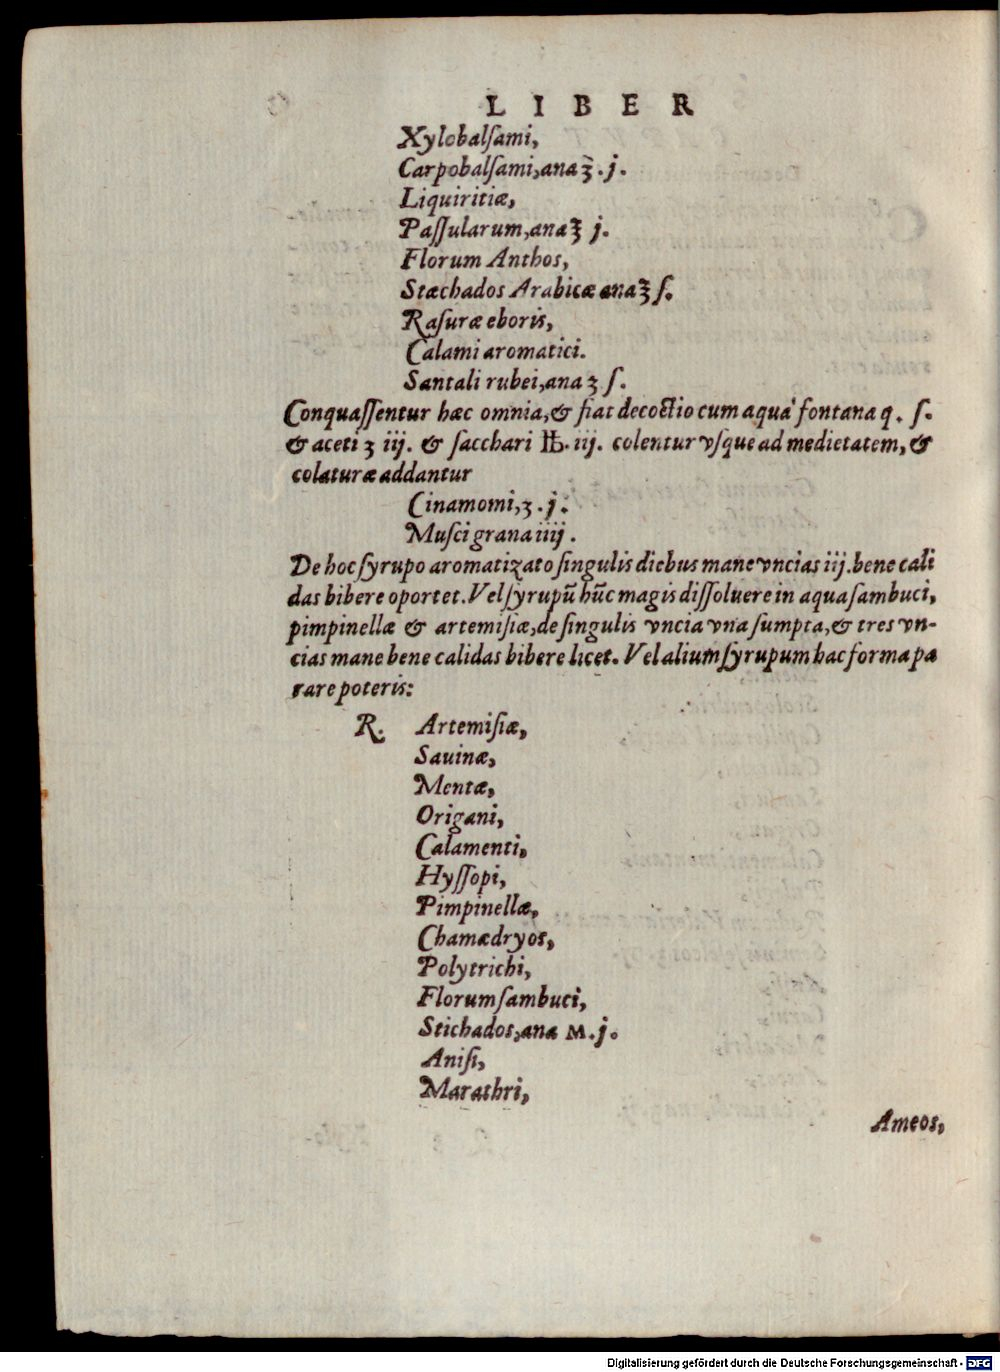 LIBER
Xylobalſami,
Carpobalſami, ana ʒ. j.
Liquiritiæ,
Paſſularum, ana ℥ j.
Florum Anthos,
Stæchados Arabicæ ana ℥ ſ.
Raſuræ eboris,
Calami aromatici.
Santali rubei, ana ʒ ſ.
Conquaſſentur hæc omnia, & fiat decoctio cum aqua fontana q. ſ.
& aceti ʒ iij. & ſacchari ℔. iij. colentur vſque ad medietatem, &
colaturæ addantur
Cinamomi, ʒ. j.
Muſci grana iiij.
De hoc ſyrupo aromatizato ſingulis diebus mane vncias iij. bene cali
das bibere oportet. Vel ſyrupū hūc magis diſſoluere in aqua ſambuci,
pimpinellæ & artemiſiæ, de ſingulis vncia vna ſumpta, & tres vn-
cias mane bene calidas bibere licet. Vel alium ſyrupum hac forma pa
rare poteris:
R. Artemiſiæ,
Sauinæ,
Mentæ,
Origani,
Calamenti,
Hyſſopi,
Pimpinellæ,
Chamædryos,
Polytrichi,
Florum ſambuci,
Stichados, ana M. j.
Aniſi,
Marathri,
Ameos,
Digitalisierung gefördert durch die Deutsche Forschungsgemeinschaft - DFG